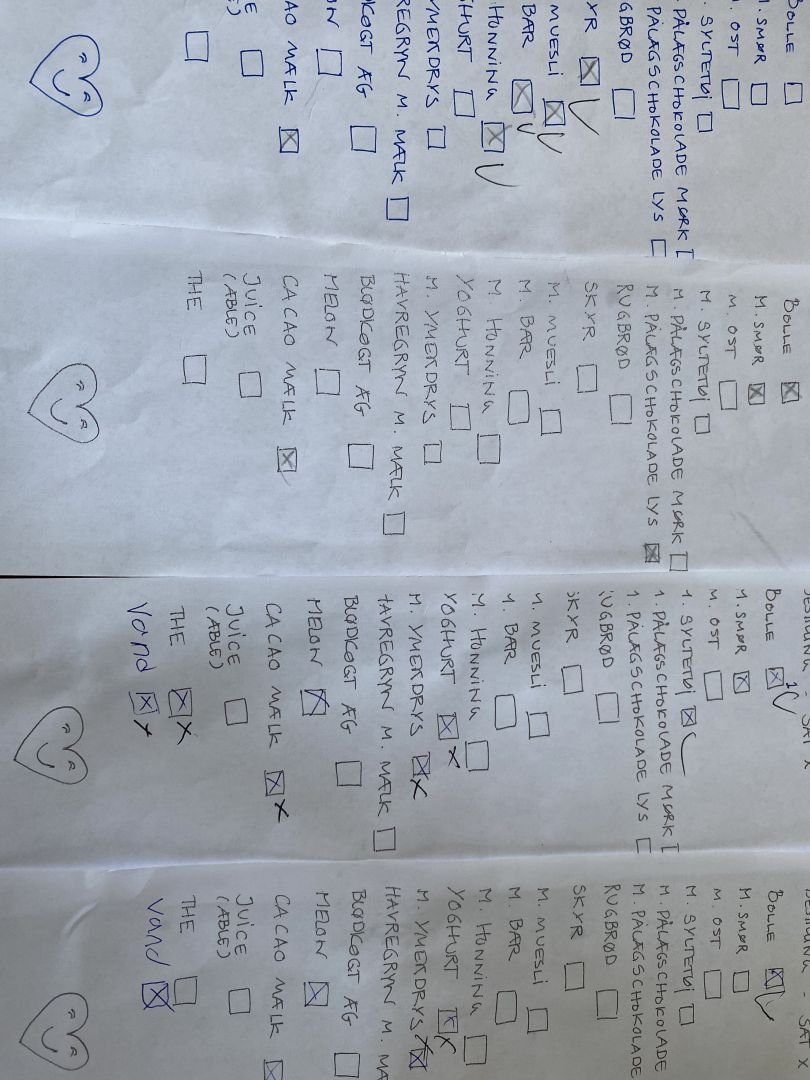 BOLLE ☐
M. SMØR ☐
M. OST ☐
. SYLTETØJ ☐
. PÅLÆGSCHOKOLADE MØRK
PÅLÆGSCHOKOLADE LYS ☐
GBRØD ☐
YR ☒ ✓
MUESLI ☒ ✓
BAR ☒ ✓
HONNING ☒ ✓
GHURT ☐
YMERDRYS ☐
REGRYN M. MÆLK ☐
DKOGT ÆG ☐
ON ☐
AO MÆLK ☒
CE ☐
E)
☐
BOLLE ☒
M. SMØR ☒
M. OST ☐
M. SYLTETØJ ☐
M. PÅLÆGSCHOKOLADE MØRK ☐
M. PÅLÆGSCHOKOLADE LYS ☒
RUGBRØD ☐
SKYR ☐
M. MUESLI ☐
M. BAR ☐
M. HONNING ☐
YOGHURT ☐
M. YMERDRYS ☐
HAVREGRYN M. MÆLK ☐
BLØDKOGT ÆG ☐
MELON ☐
CACAO MÆLK ☒
JUICE ☐
(ÆBLE)
THE ☐
- SÆT X
BOLLE ☒ 1 ✓
M. SMØR ☒
M. OST ☐
M. SYLTETØJ ☒ ✓
M. PÅLÆGSCHOKOLADE MØRK
M. PÅLÆGSCHOKOLADE LYS
RUGBRØD ☐
SKYR ☐
M. MUESLI ☐
M. BAR ☐
M. HONNING ☐
YOGHURT ☒ x
M. YMERDRYS ☒ x
HAVREGRYN M. MÆLK ☐
BLØDKOGT ÆG ☐
MELON ☒
CACAO MÆLK ☒ x
JUICE ☐
(ÆBLE)
THE ☒ x
Vand ☒ x
- SÆT X
BOLLE ☒ ✓
M. SMØR ☐
M. OST ☐
M. SYLTETØJ ☐
M. PÅLÆGSCHOKOLADE
M. PÅLÆGSCHOKOLADE
RUGBRØD ☐
SKYR ☐
M. MUESLI ☐
M. BAR ☐
M. HONNING ☐
YOGHURT ☒ x
M. YMERDRYS ☒ x
HAVREGRYN M. MÆ
BLØDKOGT ÆG ☐
MELON ☒
CACAO MÆLK ☒
JUICE ☐
(ÆBLE)
THE ☐
Vand ☒